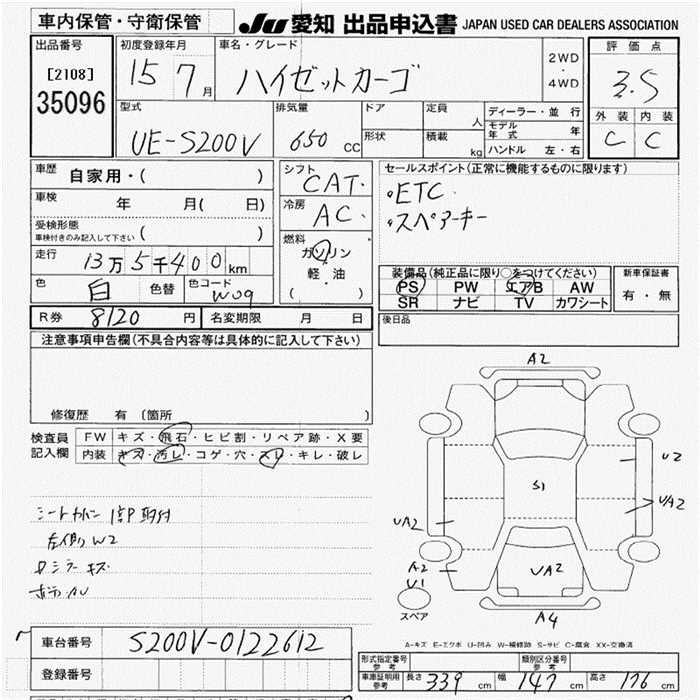 車内保管・守衛保管
JU 愛知 出品申込書 JAPAN USED CAR DEALERS ASSOCIATION
出品番号
[2108]
35096
初度登録年月
15 7月
車名・グレード
ハイゼットカーゴ
2WD
・
4WD
評価点
3.5
外装 内装
C C
型式
UE-S200V
排気量
650 CC
ドア
形状
定員 人
積載 kg
ディーラー・並行
モデル年式 年
ハンドル 左・右
車歴 自家用・( )
車検 年 月( 日)
受検形態
車検付きのみ記入して下さい ( )
走行 13万5千400km
色 白 色替 色コード W09
シフト
CAT.
冷房
AC.
燃料
ガソリン
軽・油
( )
セールスポイント(正常に機能するものに限ります)
。ETC.
。スペアーキー
装備品(純正品に限り○をつけてください)
PS PW エアB AW
SR ナビ TV カワシート
新車保証書
有・無
R券 8120円 名変期限 月 日
後日品
注意事項申告欄(不具合内容等は具体的に記入して下さい)
修復歴 有 〔箇所 〕
検査員
記入欄
FW キズ・飛石・ヒビ割・リペア跡・X要
内装 キズ・汚レ・コゲ・穴・スレ・キレ・破レ
左側 W2
ミラー キズ
A2
U2
S1
UA2
UA2
A2
U1
UA2
スペア
A4
A-キズ E-エクボ U-凹み W-補修跡 S-サビ C-腐食 XX-交換済
車台番号 S200V-0122612
登録番号
形式指定番号
参考
類別区分番号
参考
車庫証明用
参考
長さ 339 cm 幅 147 cm 高さ 176 cm